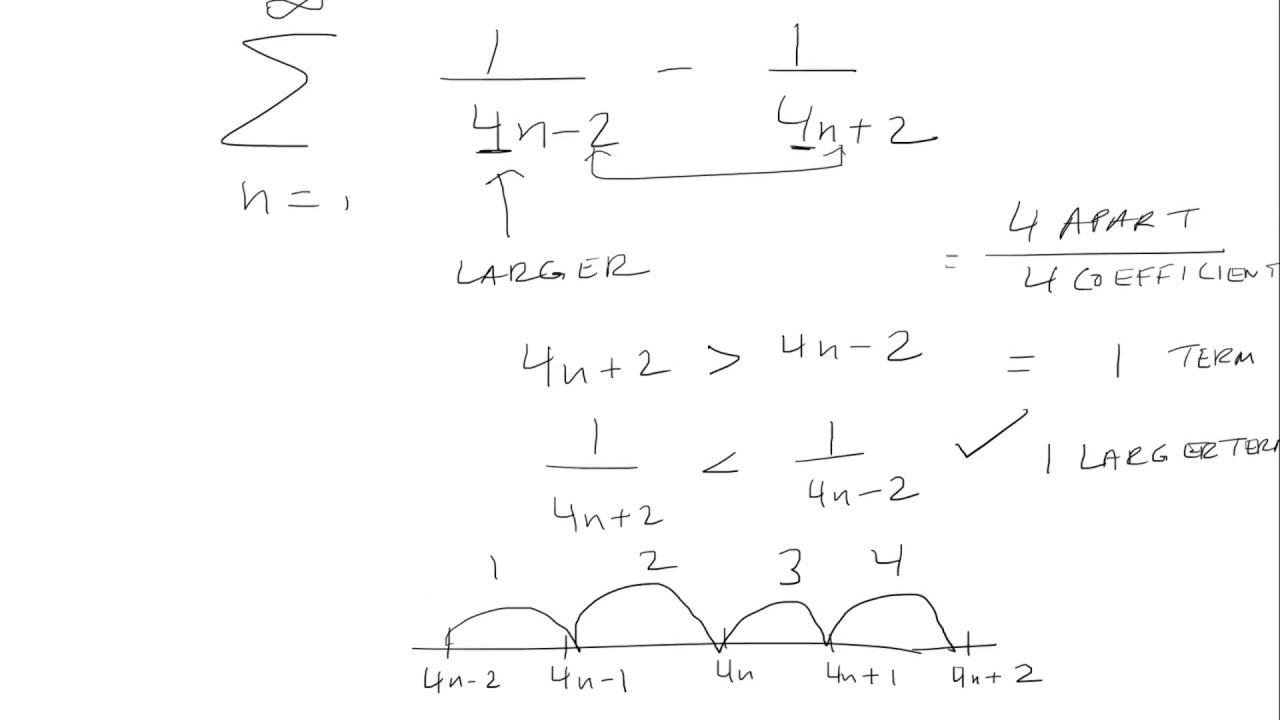 ∞
Σ 1/(4n-2) - 1/(4n+2)
n=1
LARGER
= 4 APART / 4 COEFFICIENT
4n+2 > 4n-2 = 1 TERM
1/(4n+2) < 1/(4n-2) ✓ 1 LARGER TERM
1 2 3 4
4n-2 4n-1 4n 4n+1 4n+2